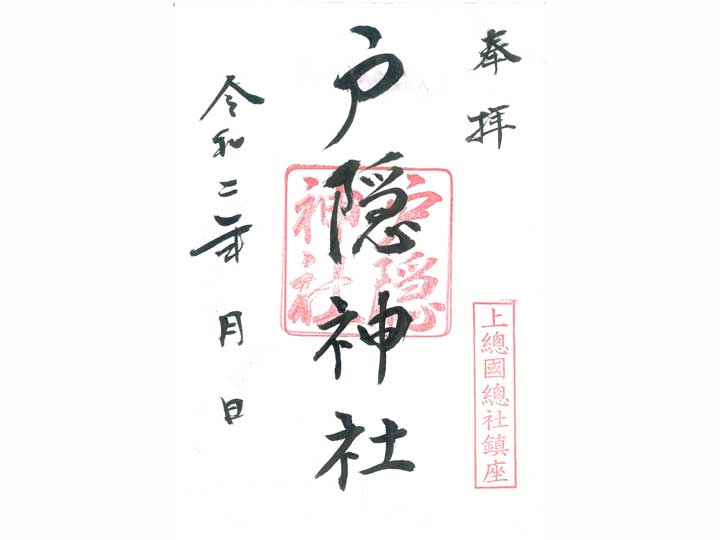 奉拝
上總國總社鎮座
戸隠神社
戸隠
神社
令和二年 月 日